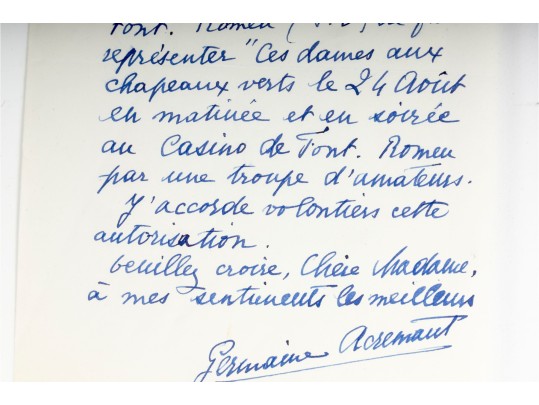 Font. Romeu
représenter "Ces dames aux
chapeaux verts le 24 Août
en matinée et en soirée
au Casino de Font. Romeu
par une troupe d'amateurs.
J'accorde volontiers cette
autorisation.
Veuillez croire, Chère Madame,
à mes sentiments les meilleurs
Germaine Acremant